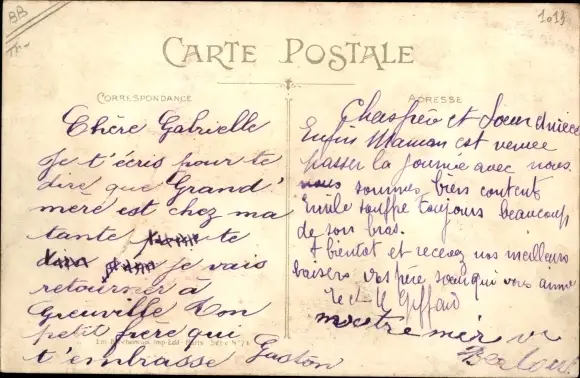 BB
1013
CARTE POSTALE
CORRESPONDANCE
ADRESSE
Chère Gabrielle
Je t'écris pour te
dire que Grand'
mère est chez ma
tante te
je vais
retourner à
Greuville ton
petit frère qui
t'embrasse Gaston
Cher frère et Soeur et nièce
Enfin Maman est venue
passer la journée avec nous
nous sommes bien content
Emile souffre toujours beaucoup
de son bras.
A bientot et recevez nos meilleurs
baisers vos frère soeur qui vous aime
Imp-Edit - Paris Série N° 71